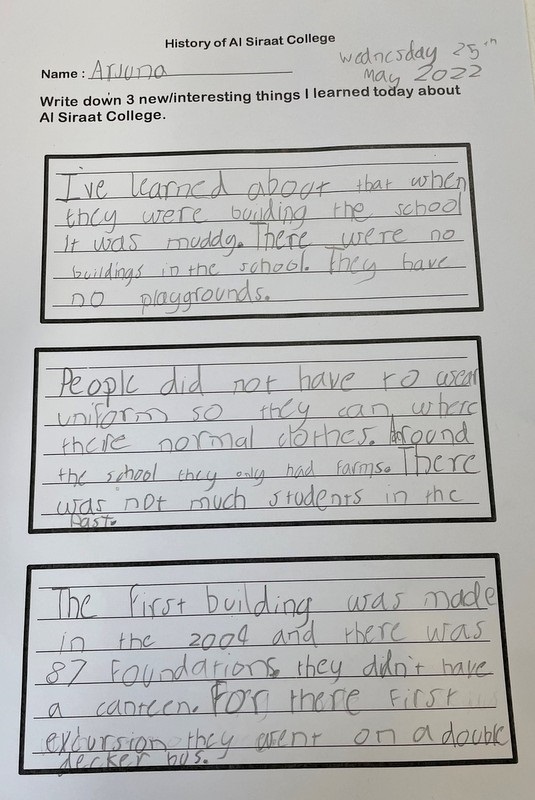 History of Al Siraat College
Wednesday 25th
May 2022
Name : Arjuna
Write down 3 new/interesting things I learned today about
Al Siraat College.
I've learned about that when
they were building the school
It was muddy. There were no
buildings in the school. They have
no playgrounds.
People did not have to wear
uniform so they can where
there normal clothes. Around
the school they only had farms. There
was not much students in the
Past.
The first building was made
in the 2009 and there was
87 Foundations they didn't have
a canteen. For there first
excursion they went on a double
decker bus.